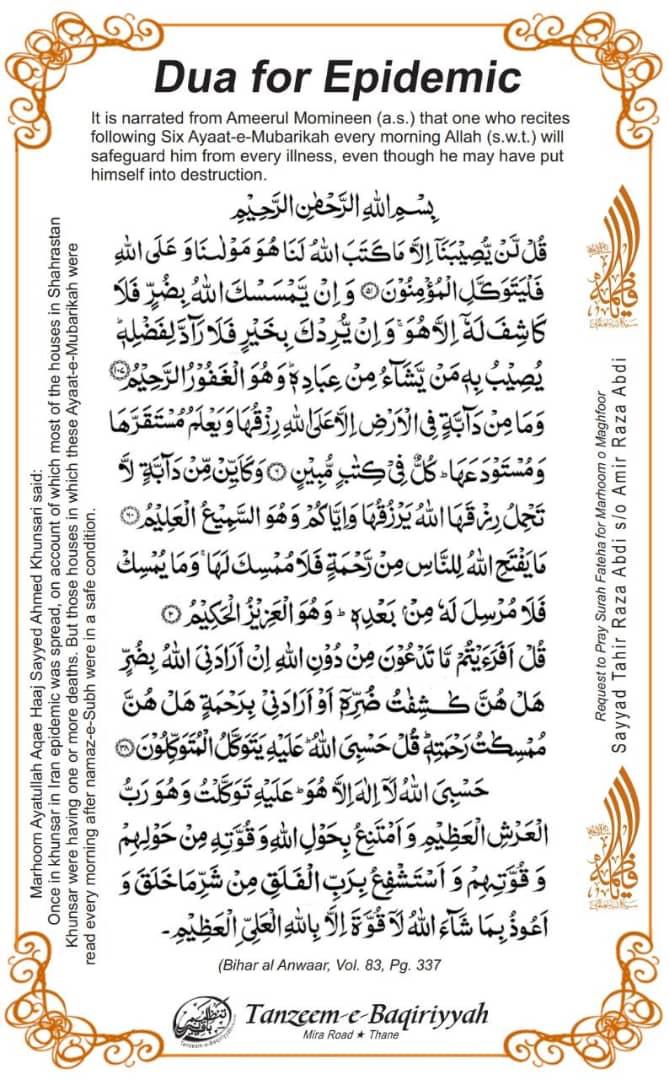 Dua for Epidemic
It is narrated from Ameerul Momineen (a.s.) that one who recites
following Six Ayaat-e-Mubarikah every morning Allah (s.w.t.) will
safeguard him from every illness, even though he may have put
himself into destruction.
بِسْمِ اللهِ الرَّحْمٰنِ الرَّحِيْمِ
قُلْ لَّنْ يُّصِيْبَنَاۤ اِلَّا مَا كَتَبَ اللهُ لَنَا هُوَ مَوْلٰىنَا وَ عَلَى اللهِ
فَلْيَتَوَكَّلِ الْمُؤْمِنُوْنَ ۝۵۱ وَ اِنْ يَّمْسَسْكَ اللهُ بِضُرٍّ فَلَا
كَاشِفَ لَهٗۤ اِلَّا هُوَ ۚ وَ اِنْ يُّرِدْكَ بِخَيْرٍ فَلَا رَآدَّ لِفَضْلِهٖ ؕ
يُصِيْبُ بِهٖ مَنْ يَّشَآءُ مِنْ عِبَادِهٖ ؕ وَهُوَ الْغَفُوْرُ الرَّحِيْمُ ۝۱۰۷
وَمَا مِنْ دَآبَّةٍ فِي الْاَرْضِ اِلَّا عَلَى اللهِ رِزْقُهَا وَ يَعْلَمُ مُسْتَقَرَّهَا
وَ مُسْتَوْدَعَهَا ؕ كُلٌّ فِيْ كِتٰبٍ مُّبِيْنٍ ۝۶ وَ كَاَيِّنْ مِّنْ دَآبَّةٍ لَّا
تَحْمِلُ رِزْقَهَا اللهُ يَرْزُقُهَا وَ اِيَّاكُمْ وَ هُوَ السَّمِيْعُ الْعَلِيْمُ ۝۶۰
مَا يَفْتَحِ اللهُ لِلنَّاسِ مِنْ رَّحْمَةٍ فَلَا مُمْسِكَ لَهَا ۚ وَمَا يُمْسِكْ
فَلَا مُرْسِلَ لَهٗ مِنْۢ بَعْدِهٖ ؕ وَ هُوَ الْعَزِيْزُ الْحَكِيْمُ ۝۲
قُلْ اَفَرَءَيْتُمْ مَّا تَدْعُوْنَ مِنْ دُوْنِ اللهِ اِنْ اَرَادَنِيَ اللهُ بِضُرٍّ
هَلْ هُنَّ كٰشِفٰتُ ضُرِّهٖۤ اَوْ اَرَادَنِيْ بِرَحْمَةٍ هَلْ هُنَّ
مُمْسِكٰتُ رَحْمَتِهٖ ؕ قُلْ حَسْبِيَ اللهُ ؕ عَلَيْهِ يَتَوَكَّلُ الْمُتَوَكِّلُوْنَ ۝۳۸
حَسْبِيَ اللهُ لَاۤ اِلٰهَ اِلَّا هُوَ ؕ عَلَيْهِ تَوَكَّلْتُ وَ هُوَ رَبُّ
الْعَرْشِ الْعَظِيْمِ وَ اَمْتَنِعُ بِحَوْلِ اللهِ وَ قُوَّتِهٖ مِنْ حَوْلِهِمْ
وَ قُوَّتِهِمْ وَ اَسْتَشْفِعُ بِرَبِّ الْفَلَقِ مِنْ شَرِّ مَا خَلَقَ وَ
اَعُوْذُ بِمَا شَآءَ اللهُ لَا قُوَّةَ اِلَّا بِاللهِ الْعَلِيِّ الْعَظِيْمِ۔
(Bihar al Anwaar, Vol. 83, Pg. 337
Marhoom Ayatullah Aqae Haaj Sayyed Ahmed Khunsari said:
Once in khunsar in Iran epidemic was spread, on account of which most of the houses in Shahrastan
Khunsar were having one or more deaths. But those houses in which these Ayaat-e-Mubarikah were
read every morning after namaz-e-Subh were in a safe condition.
Request to Pray Surah Fateha for Marhoom o Maghfoor
Sayyad Tahir Raza Abdi s/o Amir Raza Abdi
Tanzeem-e-Baqiriyyah
Tanzeem-e-Baqiriyyah
Mira Road ★ Thane